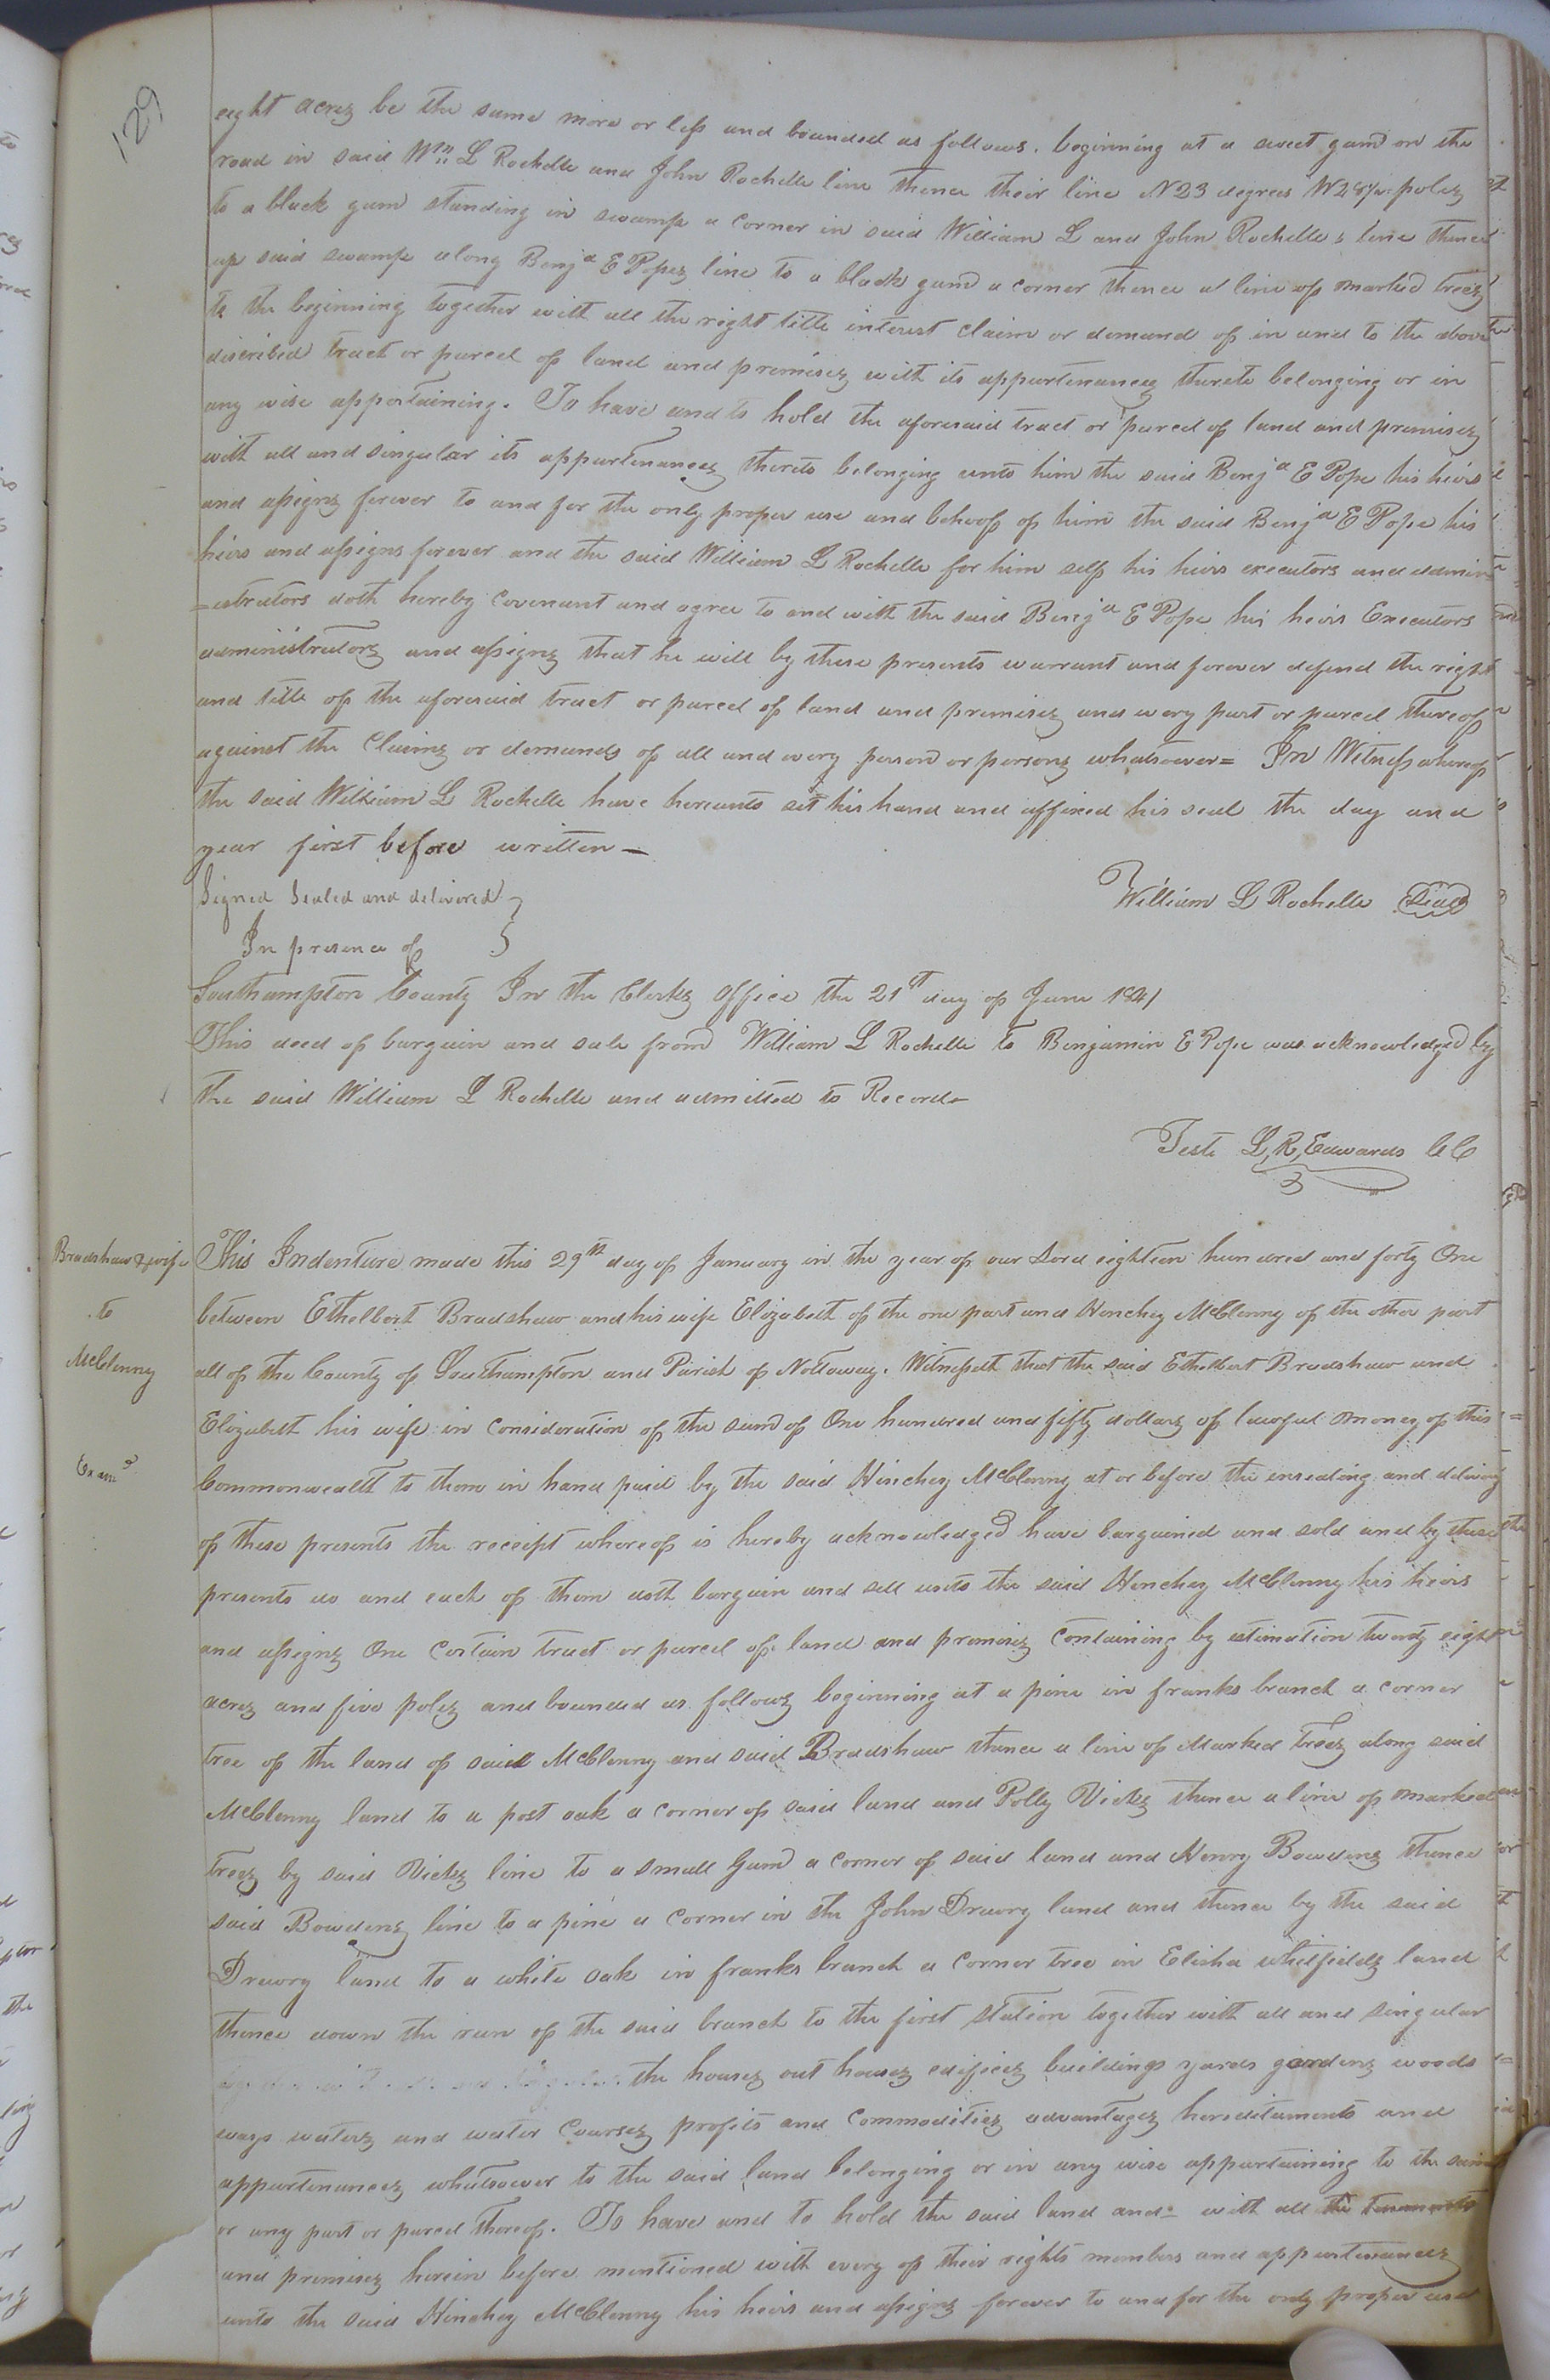 129
eight acres be the same more or less and bounded as follows. beginning at a sweet gum on the
road in said Wm L Rochelle and John Rochelle line thence their line N 23 degrees W poles
to a black gum standing in swamp a corner in said William L and John Rochelle's line thence
up said swamp along Benja E Popes line to a black gum a corner thence a line of marked trees
to the beginning together with all the right title interest claim or demand of in and to the above
discribed tract or parcel of land and premises with its appurtenances thereto belonging or in
any wise appertaining. To have and to hold the aforesaid tract or parcel of land and premises
with all and singular its appurtenances thereto belonging unto him the said Benja E Pope his heirs
and assigns forever to and for the only proper use and behoof of him the said Benja E Pope his
heirs and assigns forever and the said William L Rochelle for him self his heirs executors and admin
=istrators doth hereby covenant and agree to and with the said Benja E Pope his heirs Executors
administrators and assigns that he will by these presents warrant and forever defend the right
and title of the aforesaid tract or parcel of land and premises and every part or parcel thereof
against the Claims or demands of all and every person or persons whatsoever= In Witness whereof
the said William L Rochelle have hereunto set his hand and affixed his seal the day and
year first before written—
Signed Sealed and delivered }
William L Rochelle Seal
In presence of }
Southampton County In the Clerks Office the 21st day of June 1841
This deed of bargain and sale from William L Rochelle to Benjamin E Pope was acknowledged by
the said William L Rochelle and admitted to Record—
Teste L,R,Edwards CC
Bradshaw & wife
to
McClenny
Examd
This Indenture made this 29th day of January in the year of our Lord eighteen hundred and forty One
between Ethelbert Bradshaw and his wife Elizabeth of the one part and Hinchey McClenny of the other part
all of the County of Southampton and Parish of Nottoway. Witnesseth that the said Ethelbert Bradshaw and
Elizabeth his wife in consideration of the sum of One hundred and fifty dollars of lawful money of this
Commonwealth to them in hand paid by the said Hinchey McClenny at or before the ensealing and delivery
of these presents the receipt whereof is hereby acknowledged have bargained and sold and by these
presents do and each of them doth bargain and sell unto the said Hinchey McClenny his heirs
and assigns One Certain tract or parcel of land and premises Containing by estimation twenty eight
acres and five poles and bounded as follows beginning at a pine in franks branch a corner
tree of the land of said McClenny and said Bradshaw thence a line of Marked trees along said
McClenny land to a post oak a corner of said land and Polly Vicks thence a line of marked
trees by said Vicks line to a small Gum a corner of said land and Henry Bowdens thence
said Bowdens line to a pine a corner in the John Drewry land and thence by the said
Drewry land to a white oak in franks branch a corner tree in Elisha whitfields land
thence down the run of the said branch to the first Station together with all and singular
the houses out houses edifices buildings yards gardens woods
ways waters and water Courses profits and Commodities advantages hereditaments and
appurtenances whatsoever to the said land belonging or in any wise appurtaining to the same
or any part or parcel thereof. To have and to hold the said land and= with all the tenements
and premises herein before mentioned with every of their rights members and appurtenances
unto the said Hinchey McClenny his heirs and assigns forever to and for the only proper use